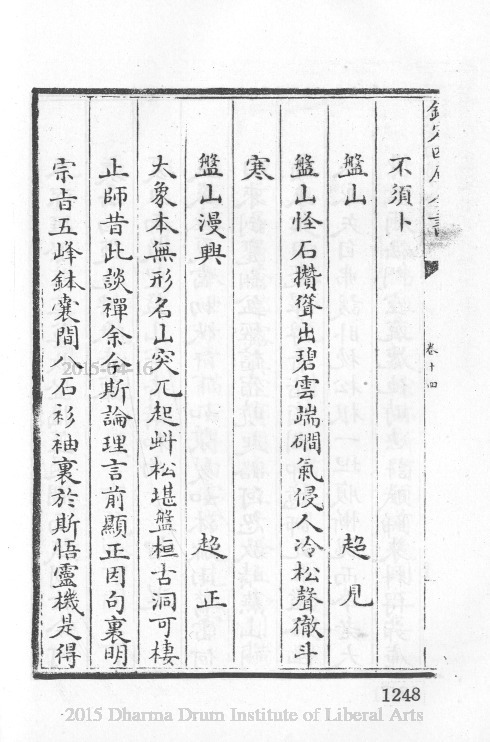 欽定四庫全書
卷十四
不須卜
盤山 超見
盤山怪石攢聳出碧雲端磵氣侵人冷松聲徹斗
寒
盤山漫興 超正
大象本無形名山突兀起斜松堪盤桓古洞可棲
止師昔此談禪余今斯論理言前顯正因句裏明
宗旨五峰鉢囊間八石衫袖裏於斯悟靈機是得
2015-04-16
1248
2015 Dharma Drum Institute of Liberal Arts